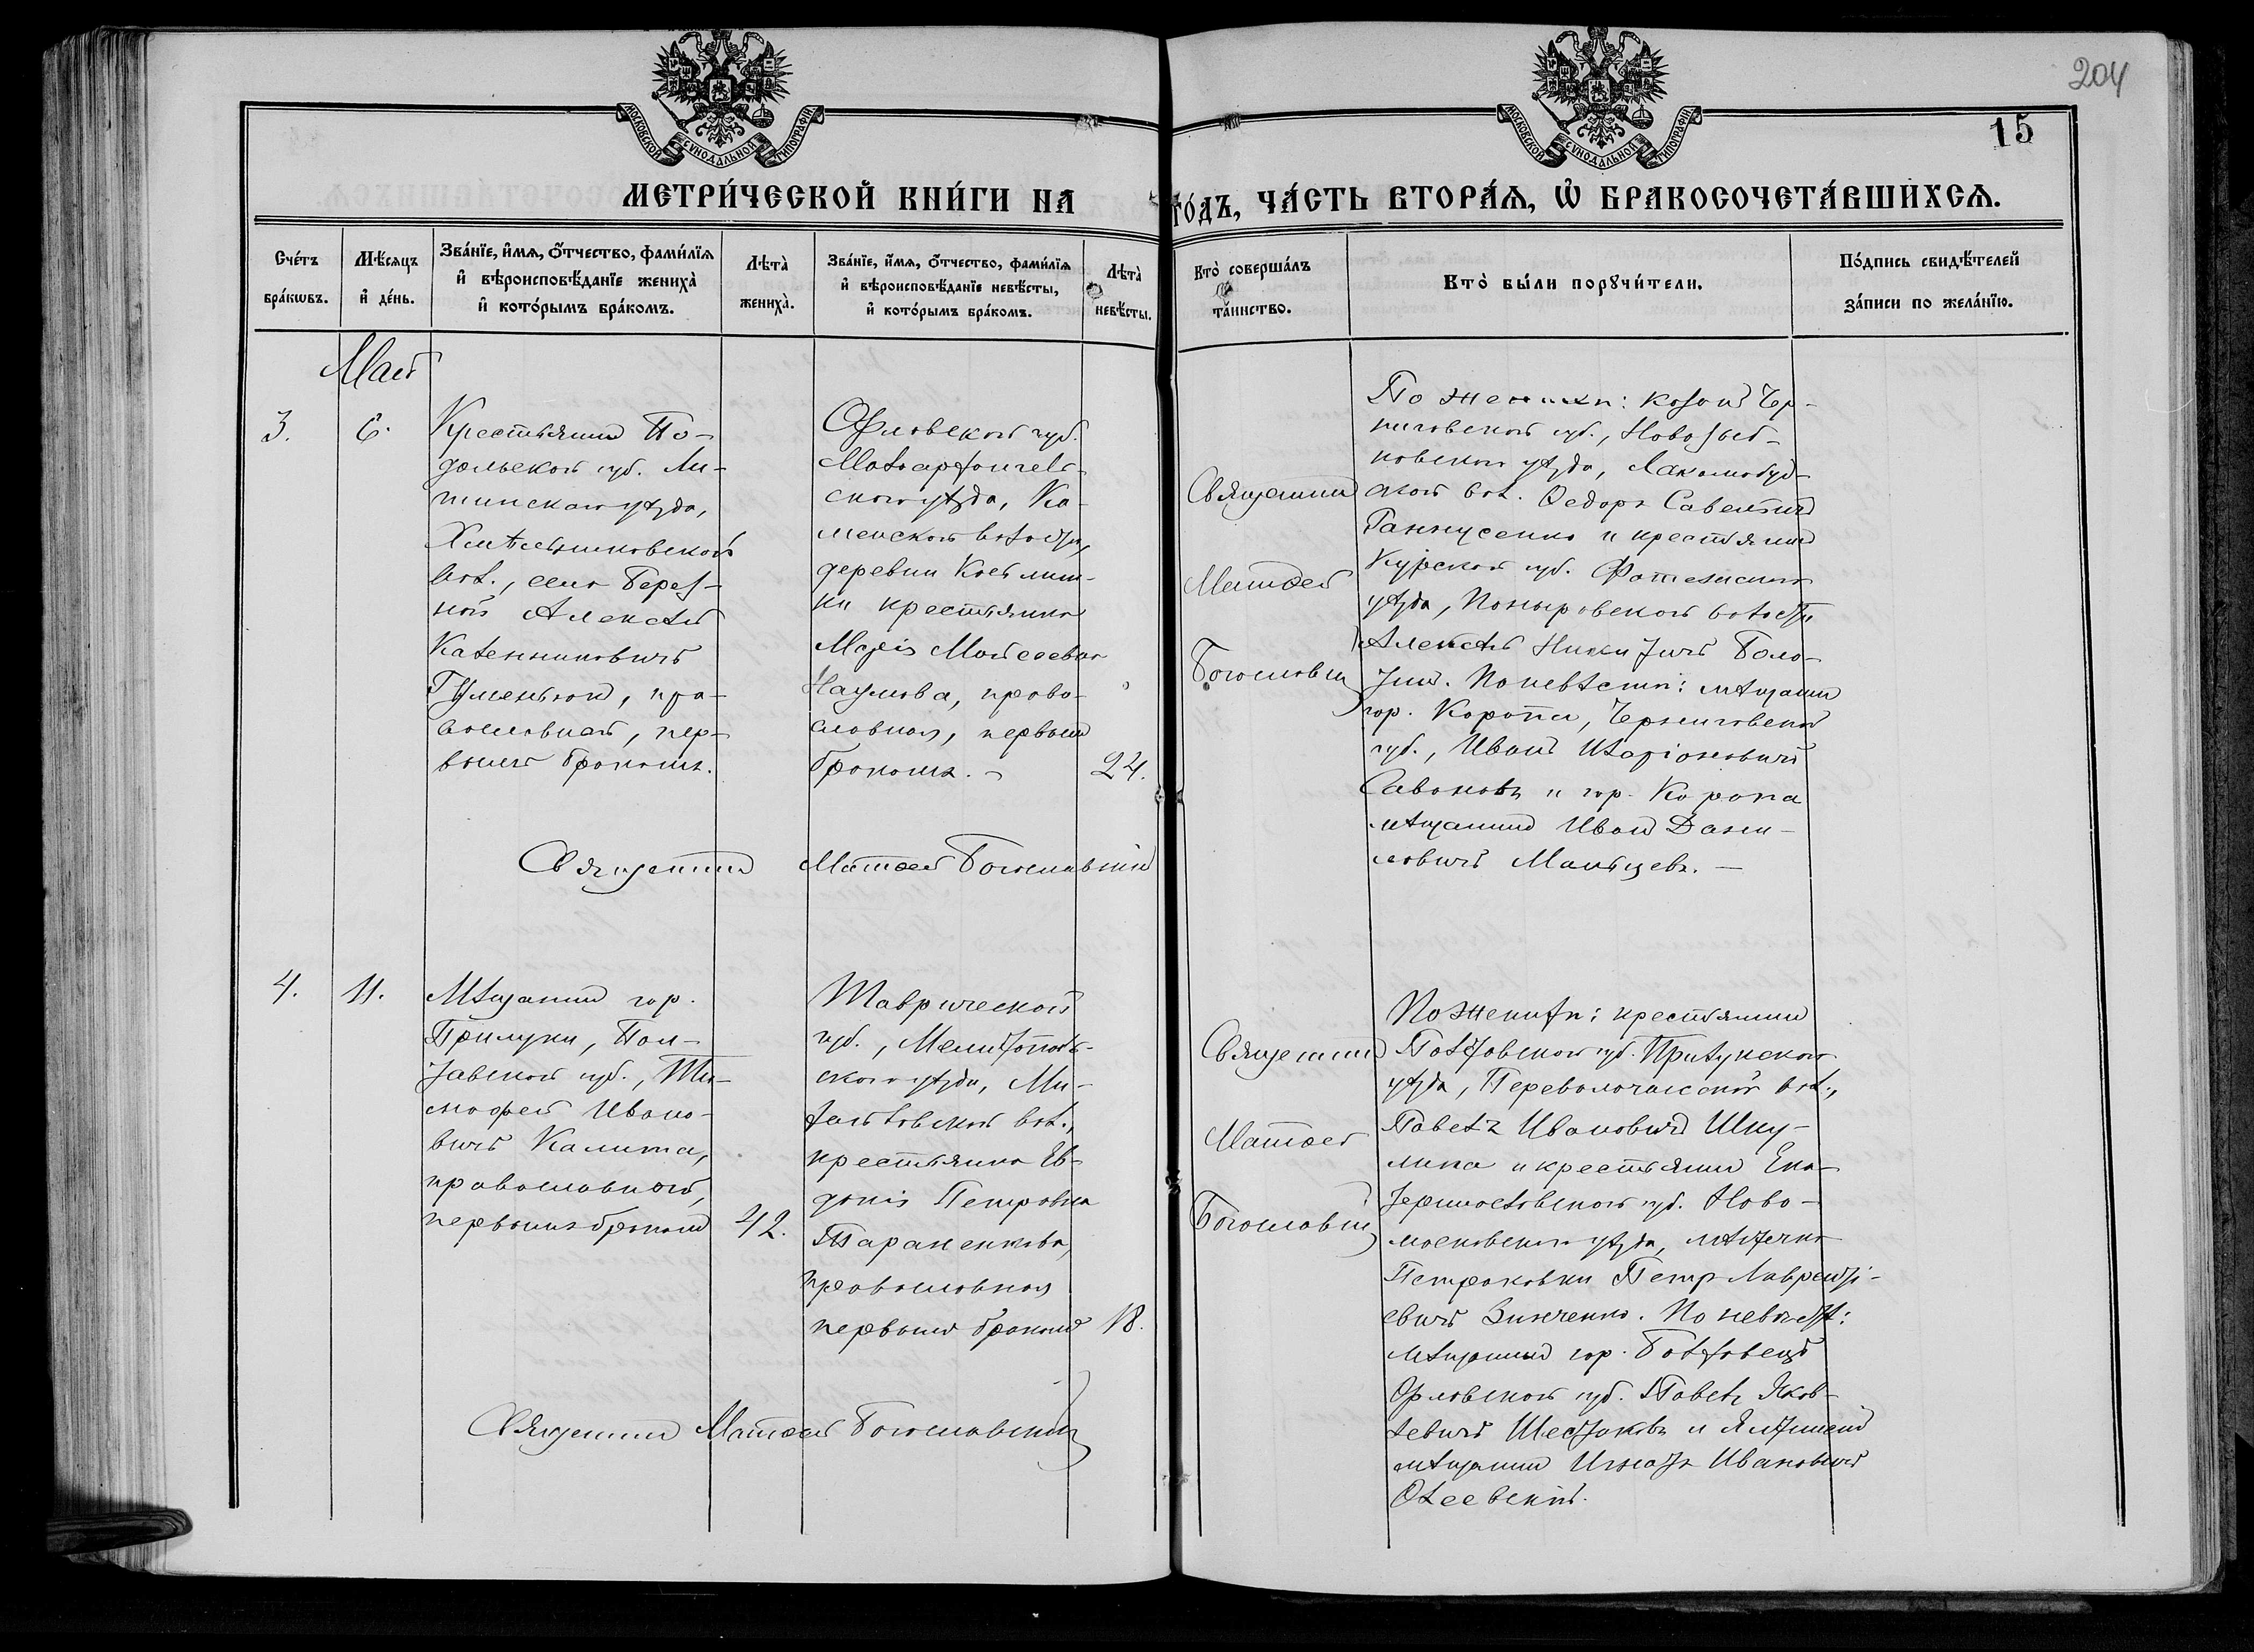 204
15
МОСКОВСКОЙ СѴНОДАЛЬНОЙ ТИПОГРАФІИ
МОСКОВСКОЙ СѴНОДАЛЬНОЙ ТИПОГРАФІИ
МЕТРИ́ЧЕСКОЙ КНИ́ГИ НА ГО́ДЪ, ЧА́СТЬ ВТОРА́Ѧ, Ѽ БРАКОСОЧЕТА́ВШИХСѦ.
Сче́тъ
бра́кѡвъ.
Мѣ́сѧцъ
и҆ де́нь.
Зва́нїе, и҆́мѧ, ѻ҆́тчество, фами́лїѧ
и҆ вѣроисповѣ́данїе жениха̀
и҆ кото́рымъ бра́комъ.
Лѣта̀
жениха̀.
Зва́нїе, и҆́мѧ, ѻ҆́тчество, фами́лїѧ
и҆ вѣроисповѣ́данїе невѣ́сты,
и҆ кото́рымъ бра́комъ.
Лѣта̀
невѣ́сты.
Кто̀ соверша́лъ
та́инство.
Кто̀ бы́ли порꙋчи́тели.
По́дпись свидѣ́телей
за́писи по жела́нїю.
Май
3.
6.
Крестьянинъ По-
дольской губ. Ли-
тинскаго уѣзда,
Хмѣльниковской
вол., села Берез-
ной Алексѣй
Гуменюкъ, пра-
вославный, пер-
вымъ бракомъ.
Орловской губ.
Малоархангель-
скаго уѣзда, Ка-
менской волости,
деревни
крестьянка
Марія Моисеевна
Наумова, право-
славная, первымъ
бракомъ.
24.
Священникъ
Матѳей
Богословскій
По женихѣ: козакъ Чер-
ниговской губ., Новозыб-
ковскаго уѣзда,
вол. Ѳедоръ Савельевичъ
и крестьянинъ
Курской губ. Фатежскаго
уѣзда, Поныровской волости
Алексѣй Никитичъ Боло-
тинъ. По невѣстѣ: мѣщанинъ
гор. Коропа, Черниговской
губ., Иванъ Иларіоновичъ
Савоновъ и гор. Коропа
мѣщанинъ Иванъ Дани-
ловичъ Мальцевъ. —
Священникъ Матѳей Богословскій
4.
11.
Мѣщанинъ гор.
Прилуки, Пол-
тавской губ., Ти-
мофей Ивано-
вичъ Калита,
православный,
первымъ бракомъ
42.
Таврической
губ., Мелитополь-
скаго уѣзда, Ми-
хайловской вол.,
крестьянка Ев-
докія Петровна
Тараненкова,
православная
первымъ бракомъ
18.
Священникъ
Матѳей
Богословскій
По женихѣ: крестьянинъ
Полтавской губ. Прилукскаго
уѣзда, Переволочанской вол.,
Павелъ Ивановичъ Шку-
липа и крестьянинъ Ека-
теринославской губ. Ново-
московскаго уѣзда, мѣстечка
Петраковки Петръ Лаврентьі-
евичъ Зинченко. По невѣстѣ:
мѣщанинъ гор. Болховецъ
Орловской губ. Павелъ Яков-
левичъ Шестаковъ и Ялтинскій
мѣщанинъ Игнатъ Ивановичъ
Священникъ Матѳей Богословскій